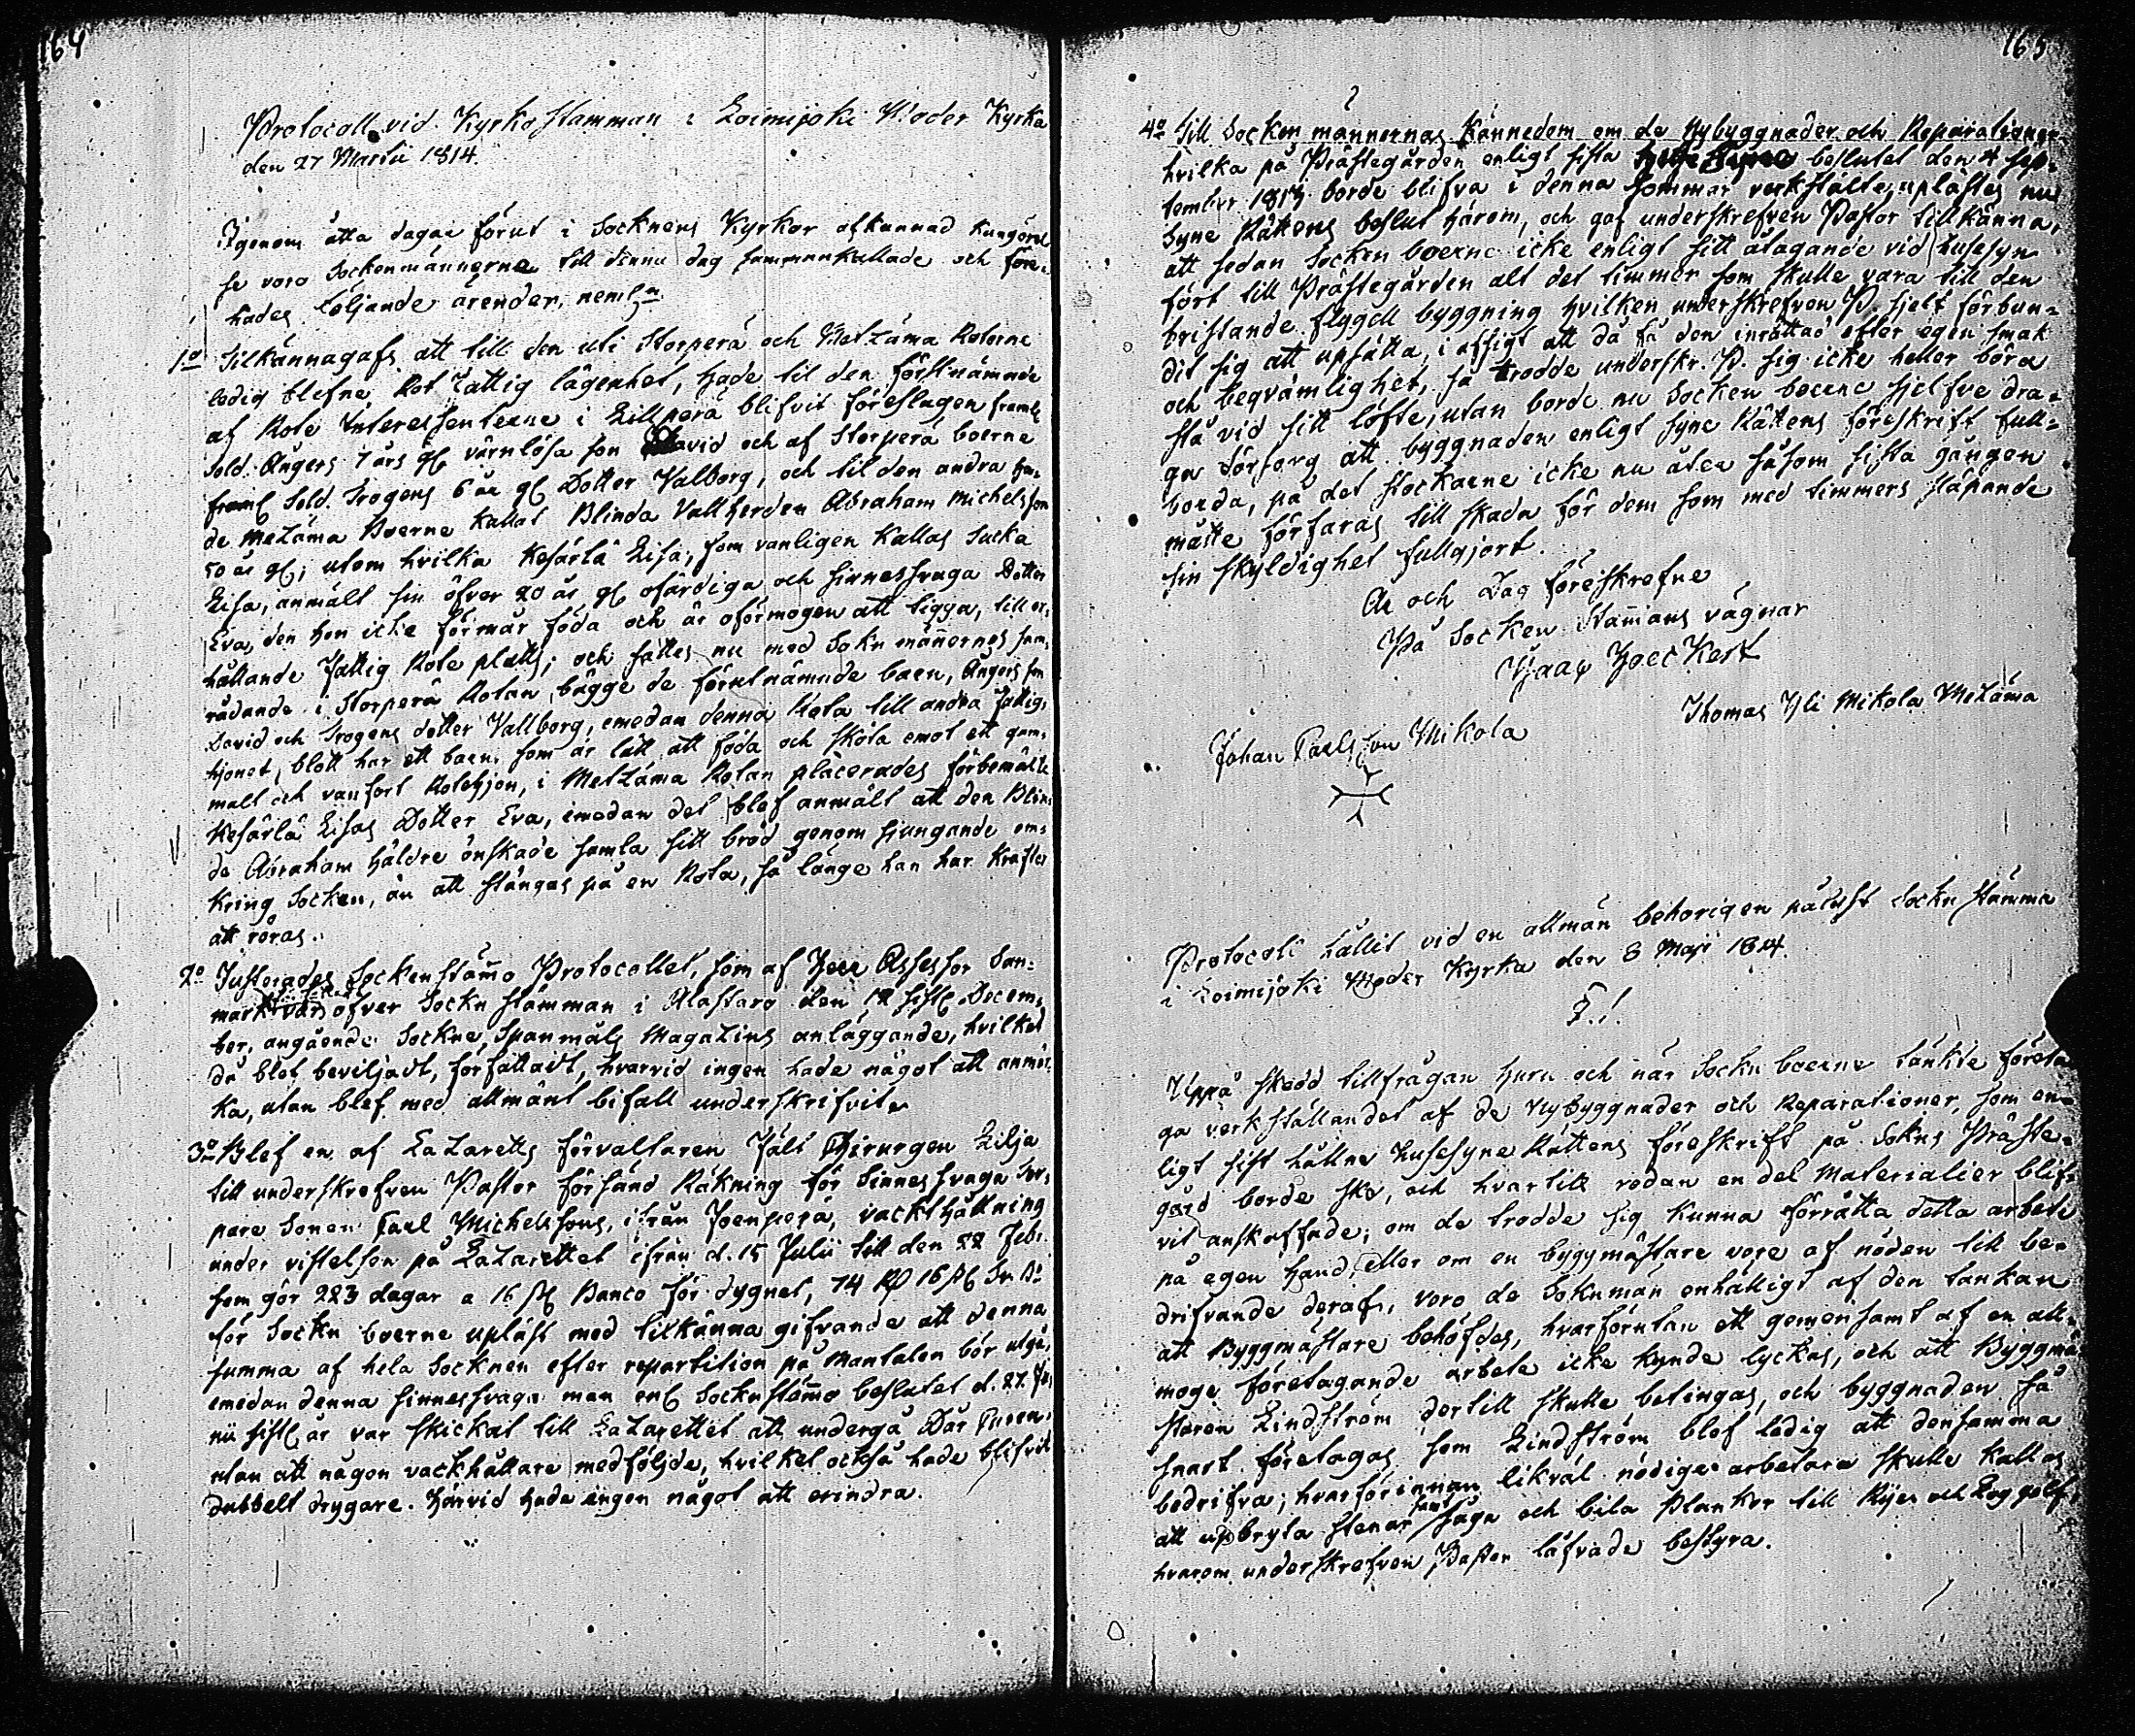 164
Protocoll vid Kyrkostämman i Loimijoki Moder Kyrka
den 27 Martii 1814.
Igenom åtta dagar förut i Socknens Kyrkor afkunnad kungörel
se voro Sockenmännerne till denna dag sammankallade och före-
hades följande ärender, neml:n
1o Tilkännagafs att till den uti Storperä och Metzämä Rotorne
ledig blefne Rot Fattig lägenhet, hade til den förstnämnde
af Rote Interessenterne i Lillperä blifvit föreslagen framl:
Sold. Ångers 7 års gl. värnlösa son David och af Storperä boerne
framl. Sold. Trogens 6 år gl. Dotter Valborg, och til den andra
de Metzämä Boerne kallat Blinda Vallherden Abraham Michelsson
50 år gl; utom hvilka Kesärlä Lisa, som vanligen kallas Sucka
Lisa, anmält sin öfver 20 år gl ofärdiga och sinnessvaga Dotter
Eva, den hon icke förmår föda och är oförmogen att tigga, till er-
hållande Fattig Rote platts; och fattes nu med Sokn männernes sam-
rådande i Storperä Rotan, bägge de förutnämnde barn, Ångers son
David och Trogens dotter Vallborg, emedan denna Rota till andra Fattig-
hjonet, blott har ett barn, som är lätt att föda och sköta emot ett gam-
malt och vanfört Rotehjon, i Metzämä Rotan placerades förbemälte
Kesärlä Lisas Dotter Eva, emedan det blef anmält att den Blin-
de Abraham häldre önskade samla sitt bröd genom sjungande om-
kring Socken, än att stängas på en Rota, så länge han har krafter
att röras.
2o Justerades Sockenstämo Protocollet, som af Herr Assessor San-
mark öfver Sockn stämman i Alastaro den 12 sistl. Decem-
ber, angående Sockne Spanmåls Magazins anläggande, hvilket
då blef beviljadt, författadt, hvarvid ingen hade något att anmär-
ka, utan blef med allmänt bifall underskrifvit.
3o Blef en af Lazaretts förvaltaren Fält Chirurgen Lilja
till underskrefven Pastor försänd Räkning för Sinnessvaga Tor-
pare Sonen Carl Michelssons, ifrån Joenperä, vackthållning
under vistelsen på Lazarettet ifrån d. 15 Julii till den 22 Febr.
som gör 223 dagar a 16 sk Banco för dygnet, 74 Rd 16 sk
för Sockn boerne upläst med tilkänna gifvande att denna
summa af hela Socknen efter repartition på Mantalen bör utgå,
emedan denna sinnessvaga man enl. Socknstämo beslutet d. 27. Ju-
nii sistl. år var skickat till Lazarettet att undergå Där Curen,
utan att någon vackthållare medföljde, hvilket också hade blifvit
dubbelt drygare. Härvid hade ingen något att erindra.
165
4o Till Sockenmännernas kännedom om de Nybyggnader och Reparationer
hvilka på Prästegården enligt sista beslutet den 4 Sep-
tember 1813 borde blifva i denna sommar verkstälte, uplästes nu
Syne Rättens beslut härom, och gaf underskrefven Pastor tillkänna,
att sedan Socken boerne icke enligt sitt åtagande vid husesyn
fört till Prästegården alt det timmer som skulle vara till den
bristande flygell byggning hvilken underskrefven P. sjelf förbun-
dit sig att upsätta, i afsigt att då få den inrättad efter egen smak
och beqvämlighet, så trodde underskr. P. sig icke heller böra
stå vid sitt löfte, utan borde nu Socken boerne sjelfve dra-
ga försorg att byggnaden enligt syne Rättens föreskrift full-
borda, på det stockarne icke nu åter såsom sista gången
måtte förfaras till skada för dem som med timmers släpande
sin skyldighet fullgjort.
År och Dag föreskrefne
På Socken Stämans vägnar
Johan Carlsson Mikola
Thomas Yli Mikola Metzämä
Protocoll hållit vid en allmän behörigen pålyst Sockn stämma
i Loimijoki Moder Kyrka den 8 Maji 1814.
§.1.
Uppå skedd tillfrågan huru och när Sockn boerne tänkte företa
ga verkställandet af de Nybyggnader och Reparationer, som en-
ligt sist hållne Husesyne Rättens föreskrift på Sokns Präste-
gård borde ske, och hvartill redan en del Materialier blif-
vit anskaffade; om de trodde sig kunna förrätta detta arbete
på egen hand, eller om en byggmästare vore af nöden till be-
drifvande deraf, voro de Soknmän enhälligt af den tankan
att Byggmästare behöfdes, hvarförutan ett gemensamt af en all-
moge företagande arbete icke kunde lyckas, och att Byggmä
staren Lindström dertill skulle betingas, och byggnaden så
snart företagas som Lindström blef ledig att densamma
bedrifva; hvarförinnan likväl nödige arbetare skulle kallas
att upbryta stenar samt såga och bila Plankor till Rijer och Log golf,
hvarom underskrefven Pastor låfvade bestyra.